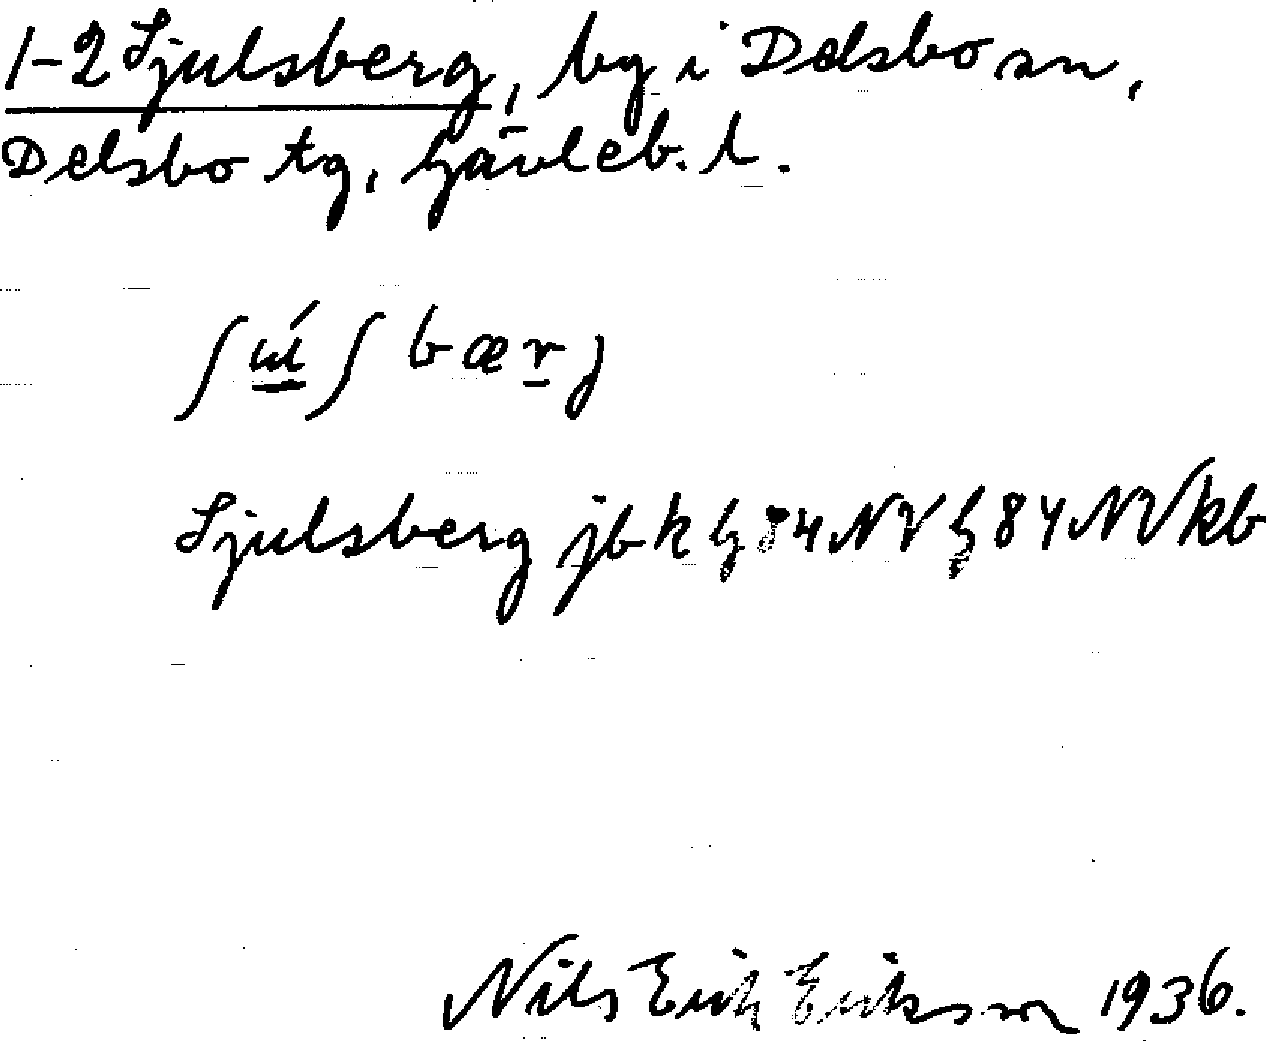 1-2 Sjulsberg, by i Delsbo sn,
Delsbo tg, Gävleb. l.
ʃɯ́ʃbærj
Sjulsberg jb k G 84 NV G 84 NV kb
Nils Erik Eriksson 1936.